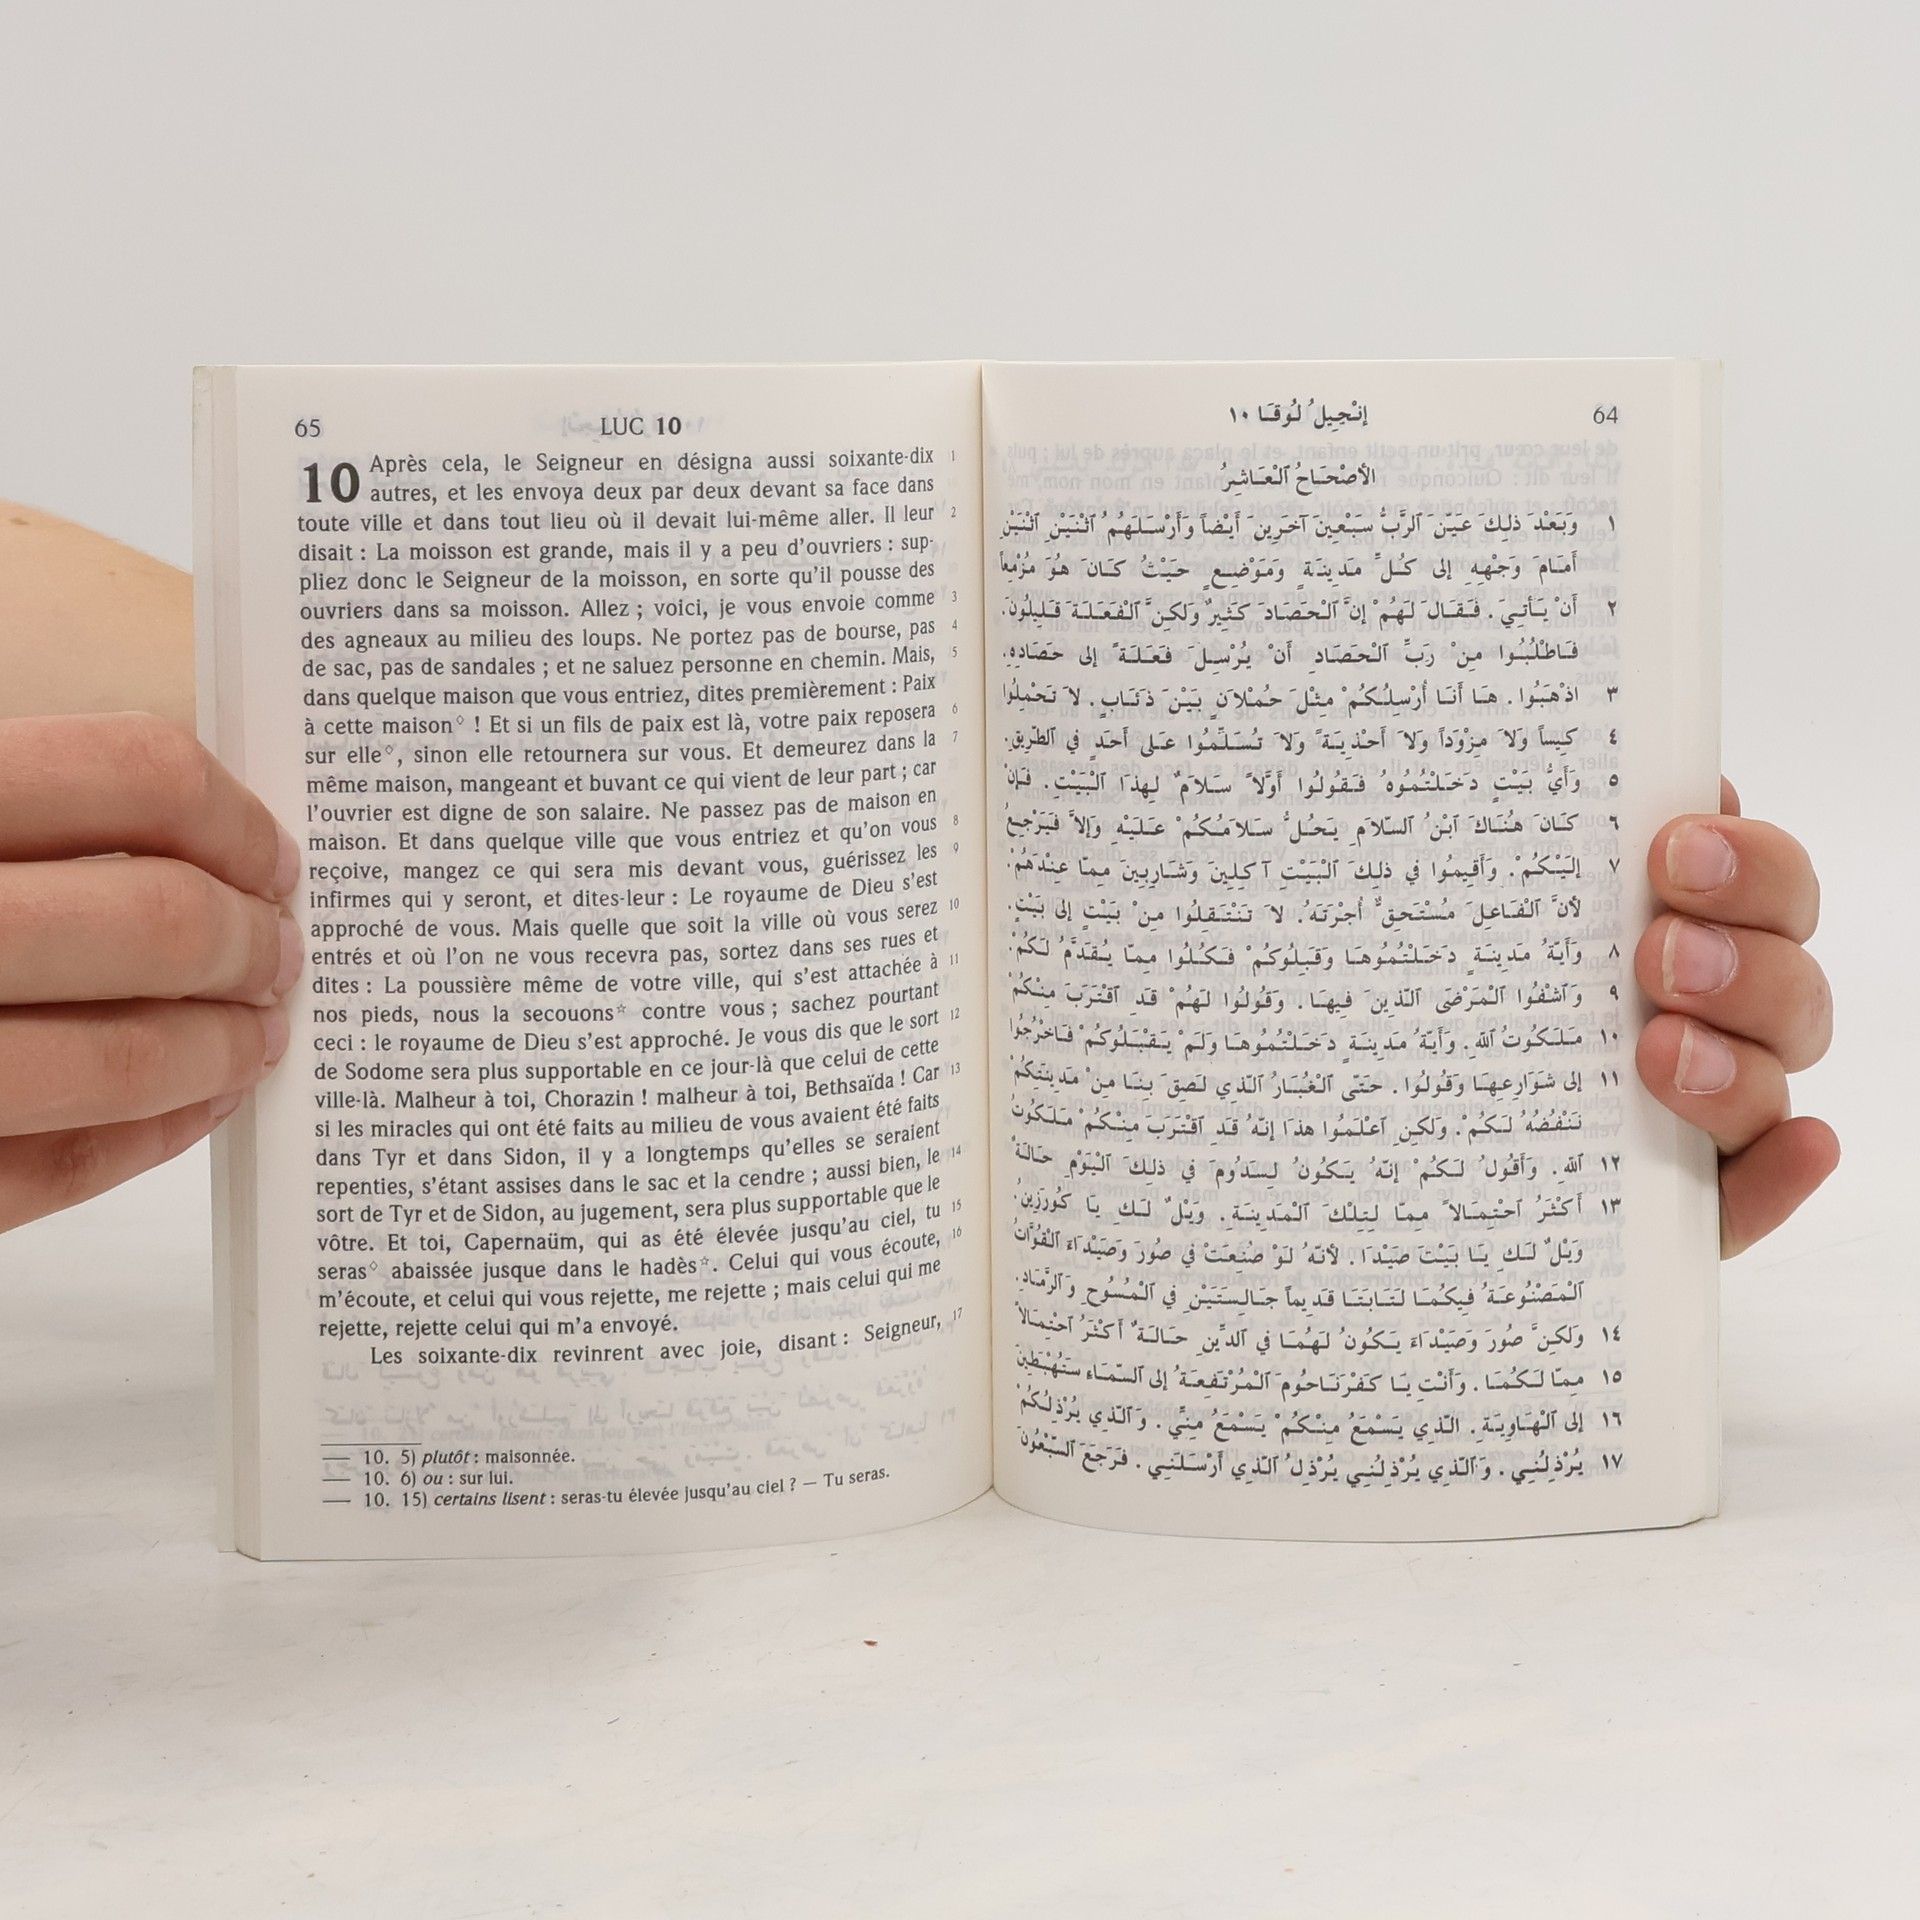 65 LUC 10
10 Après cela, le Seigneur en désigna aussi soixante-dix 1
autres, et les envoya deux par deux devant sa face dans
toute ville et dans tout lieu où il devait lui-même aller. Il leur 2
disait : La moisson est grande, mais il y a peu d’ouvriers : sup-
pliez donc le Seigneur de la moisson, en sorte qu’il pousse des
ouvriers dans sa moisson. Allez ; voici, je vous envoie comme 3
des agneaux au milieu des loups. Ne portez pas de bourse, pas 4
de sac, pas de sandales ; et ne saluez personne en chemin. Mais, 5
dans quelque maison que vous entriez, dites premièrement : Paix
à cette maison◊ ! Et si un fils de paix est là, votre paix reposera 6
sur elle◊, sinon elle retournera sur vous. Et demeurez dans la 7
même maison, mangeant et buvant ce qui vient de leur part ; car
l’ouvrier est digne de son salaire. Ne passez pas de maison en
maison. Et dans quelque ville que vous entriez et qu’on vous 8
reçoive, mangez ce qui sera mis devant vous, guérissez les 9
infirmes qui y seront, et dites-leur : Le royaume de Dieu s’est
approché de vous. Mais quelle que soit la ville où vous serez 10
entrés et où l’on ne vous recevra pas, sortez dans ses rues et
dites : La poussière même de votre ville, qui s’est attachée à 11
nos pieds, nous la secouons☆ contre vous ; sachez pourtant
ceci : le royaume de Dieu s’est approché. Je vous dis que le sort 12
de Sodome sera plus supportable en ce jour-là que celui de cette
ville-là. Malheur à toi, Chorazin ! malheur à toi, Bethsaïda ! Car 13
si les miracles qui ont été faits au milieu de vous avaient été faits
dans Tyr et dans Sidon, il y a longtemps qu’elles se seraient
repenties, s’étant assises dans le sac et la cendre ; aussi bien, le 14
sort de Tyr et de Sidon, au jugement, sera plus supportable que le
vôtre. Et toi, Capernaüm, qui as été élevée jusqu’au ciel, tu 15
seras◊ abaissée jusque dans le hadès☆. Celui qui vous écoute, 16
m’écoute, et celui qui vous rejette, me rejette ; mais celui qui me
rejette, rejette celui qui m’a envoyé.
Les soixante-dix revinrent avec joie, disant : Seigneur, 17
— 10. 5) plutôt : maisonnée.
— 10. 6) ou : sur lui.
— 10. 15) certains lisent : seras-tu élevée jusqu’au ciel ? — Tu seras.
64 إِنْجِيلُ لُوقَا ١٠
الأصْحَاحُ ٱلْعَاشِرُ
١ وَبَعْدَ ذٰلِكَ عَيَّنَ ٱلرَّبُّ سَبْعِينَ آخَرِينَ أَيْضاً وَأَرْسَلَهُمُ ٱثْنَيْنِ ٱثْنَيْنِ
أَمَامَ وَجْهِهِ إِلى كُلِّ مَدِينَةٍ وَمَوْضِعٍ حَيْثُ كَانَ هُوَ مُزْمِعاً
٢ أَنْ يَأْتِيَ. فَقَالَ لَهُمْ إِنَّ ٱلْحَصَادَ كَثِيرٌ وَلٰكِنَّ ٱلْفَعَلَةَ قَلِيلُونَ.
فَٱطْلُبُوا مِنْ رَبِّ ٱلْحَصَادِ أَنْ يُرْسِلَ فَعَلَةً إِلى حَصَادِهِ.
٣ اذْهَبُوا. هَا أَنَا أُرْسِلُكُمْ مِثْلَ حُمْلاَنٍ بَيْنَ ذِئَابٍ. لاَ تَحْمِلُوا
٤ كِيساً وَلاَ مِزْوَداً وَلاَ أَحْذِيَةً وَلاَ تُسَلِّمُوا عَلى أَحَدٍ في ٱلطَّرِيقِ.
٥ وَأَيُّ بَيْتٍ دَخَلْتُمُوهُ فَقُولُوا أَوَّلاً سَلاَمٌ لِهٰذَا ٱلْبَيْتِ. فَإِنْ
٦ كَانَ هُنَاكَ ٱبْنُ ٱلسَّلاَمِ يَحُلُّ سَلاَمُكُمْ عَلَيْهِ وَإِلاَّ فَيَرْجِعُ
٧ إِلَيْكُمْ. وَأَقِيمُوا في ذٰلِكَ ٱلْبَيْتِ آكِلِينَ وَشَارِبِينَ مِمَّا عِنْدَهُمْ.
لأَنَّ ٱلْفَاعِلَ مُسْتَحِقٌّ أُجْرَتَهُ. لاَ تَنْتَقِلُوا مِنْ بَيْتٍ إِلى بَيْتٍ.
٨ وَأَيَّةُ مَدِينَةٍ دَخَلْتُمُوهَا وَقَبِلُوكُمْ فَكُلُوا مِمَّا يُقَدَّمُ لَكُمْ.
٩ وَٱشْفُوا ٱلْمَرْضَى ٱلَّذِينَ فِيهَا. وَقُولُوا لَهُمْ قَدِ ٱقْتَرَبَ مِنْكُمْ
١٠ مَلَكُوتُ ٱللهِ. وَأَيَّةُ مَدِينَةٍ دَخَلْتُمُوهَا وَلَمْ يَقْبَلُوكُمْ فَٱخْرُجُوا
١١ إِلى شَوَارِعِهَا وَقُولُوا. حَتَّى ٱلْغُبَارُ ٱلَّذِي لَصِقَ بِنَا مِنْ مَدِينَتِكُمْ
نَنْفُضُهُ لَكُمْ. وَلٰكِنِ ٱعْلَمُوا هٰذَا إِنَّهُ قَدِ ٱقْتَرَبَ مِنْكُمْ مَلَكُوتُ
١٢ ٱللهِ. وَأَقُولُ لَكُمْ إِنَّهُ يَكُونُ لِسَدُومَ في ذٰلِكَ ٱلْيَوْمِ حَالَةٌ
١٣ أَكْثَرُ ٱحْتِمَالاً مِمَّا لِتِلْكَ ٱلْمَدِينَةِ. وَيْلٌ لَكِ يَا كُورَزِينُ.
وَيْلٌ لَكِ يَا بَيْتَ صَيْدَا. لأَنَّهُ لَوْ صُنِعَتْ في صُورَ وَصَيْدَاءَ ٱلْقُوَّاتُ
ٱلْمَصْنُوعَةُ فِيكُمَا لَتَابَتَا قَدِيماً جَالِسَتَيْنِ في ٱلْمُسُوحِ وَٱلرَّمَادِ.
١٤ وَلٰكِنَّ صُورَ وَصَيْدَاءَ يَكُونُ لَهُمَا في ٱلدِّينِ حَالَةٌ أَكْثَرُ ٱحْتِمَالاً
١٥ مِمَّا لَكُمَا. وَأَنْتِ يَا كَفْرَنَاحُومَ ٱلْمُرْتَفِعَةُ إِلى ٱلسَّمَاءِ سَتُهْبَطِينَ
١٦ إِلى ٱلْهَاوِيَةِ. الَّذِي يَسْمَعُ مِنْكُمْ يَسْمَعُ مِنِّي. وَٱلَّذِي يُرْذِلُكُمْ
١٧ يُرْذِلُنِي. وَٱلَّذِي يُرْذِلُنِي يُرْذِلُ ٱلَّذِي أَرْسَلَنِي. فَرَجَعَ ٱلسَّبْعُونَ